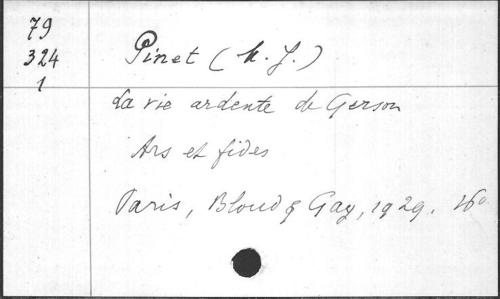 79
324
1
Pinet (M. J.)
La vie ardente de Gerson
Ars et fides
Paris, Bloud & Gay, 1929. 16º